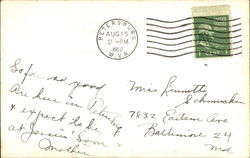 PETERSBURG
AUG 15
2-PM
1950
W.VA.
So far so good
Are here in
& expect to be
at Jennie's soon
Mother
Miss Linnette
Schmucker
7832 Eastern Ave
Baltimore 24
Md